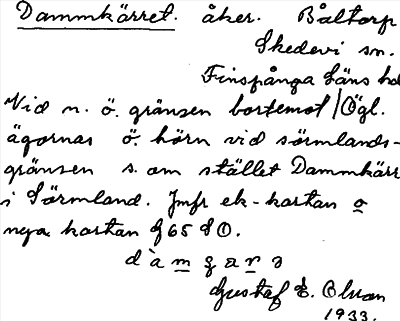 Dammkärret. åker. Båltorp
Skedevi sn.
Finspånga läns hd
Vid n. ö. gränsen bortemot (Ögl.
ägornas ö. hörn vid sörmlands-
gränsen s. om stället Dammkärr
i Sörmland. Jmfr ek-kartan o
nya kartan J65 SO.
Gustaf E. Olsson
1933.